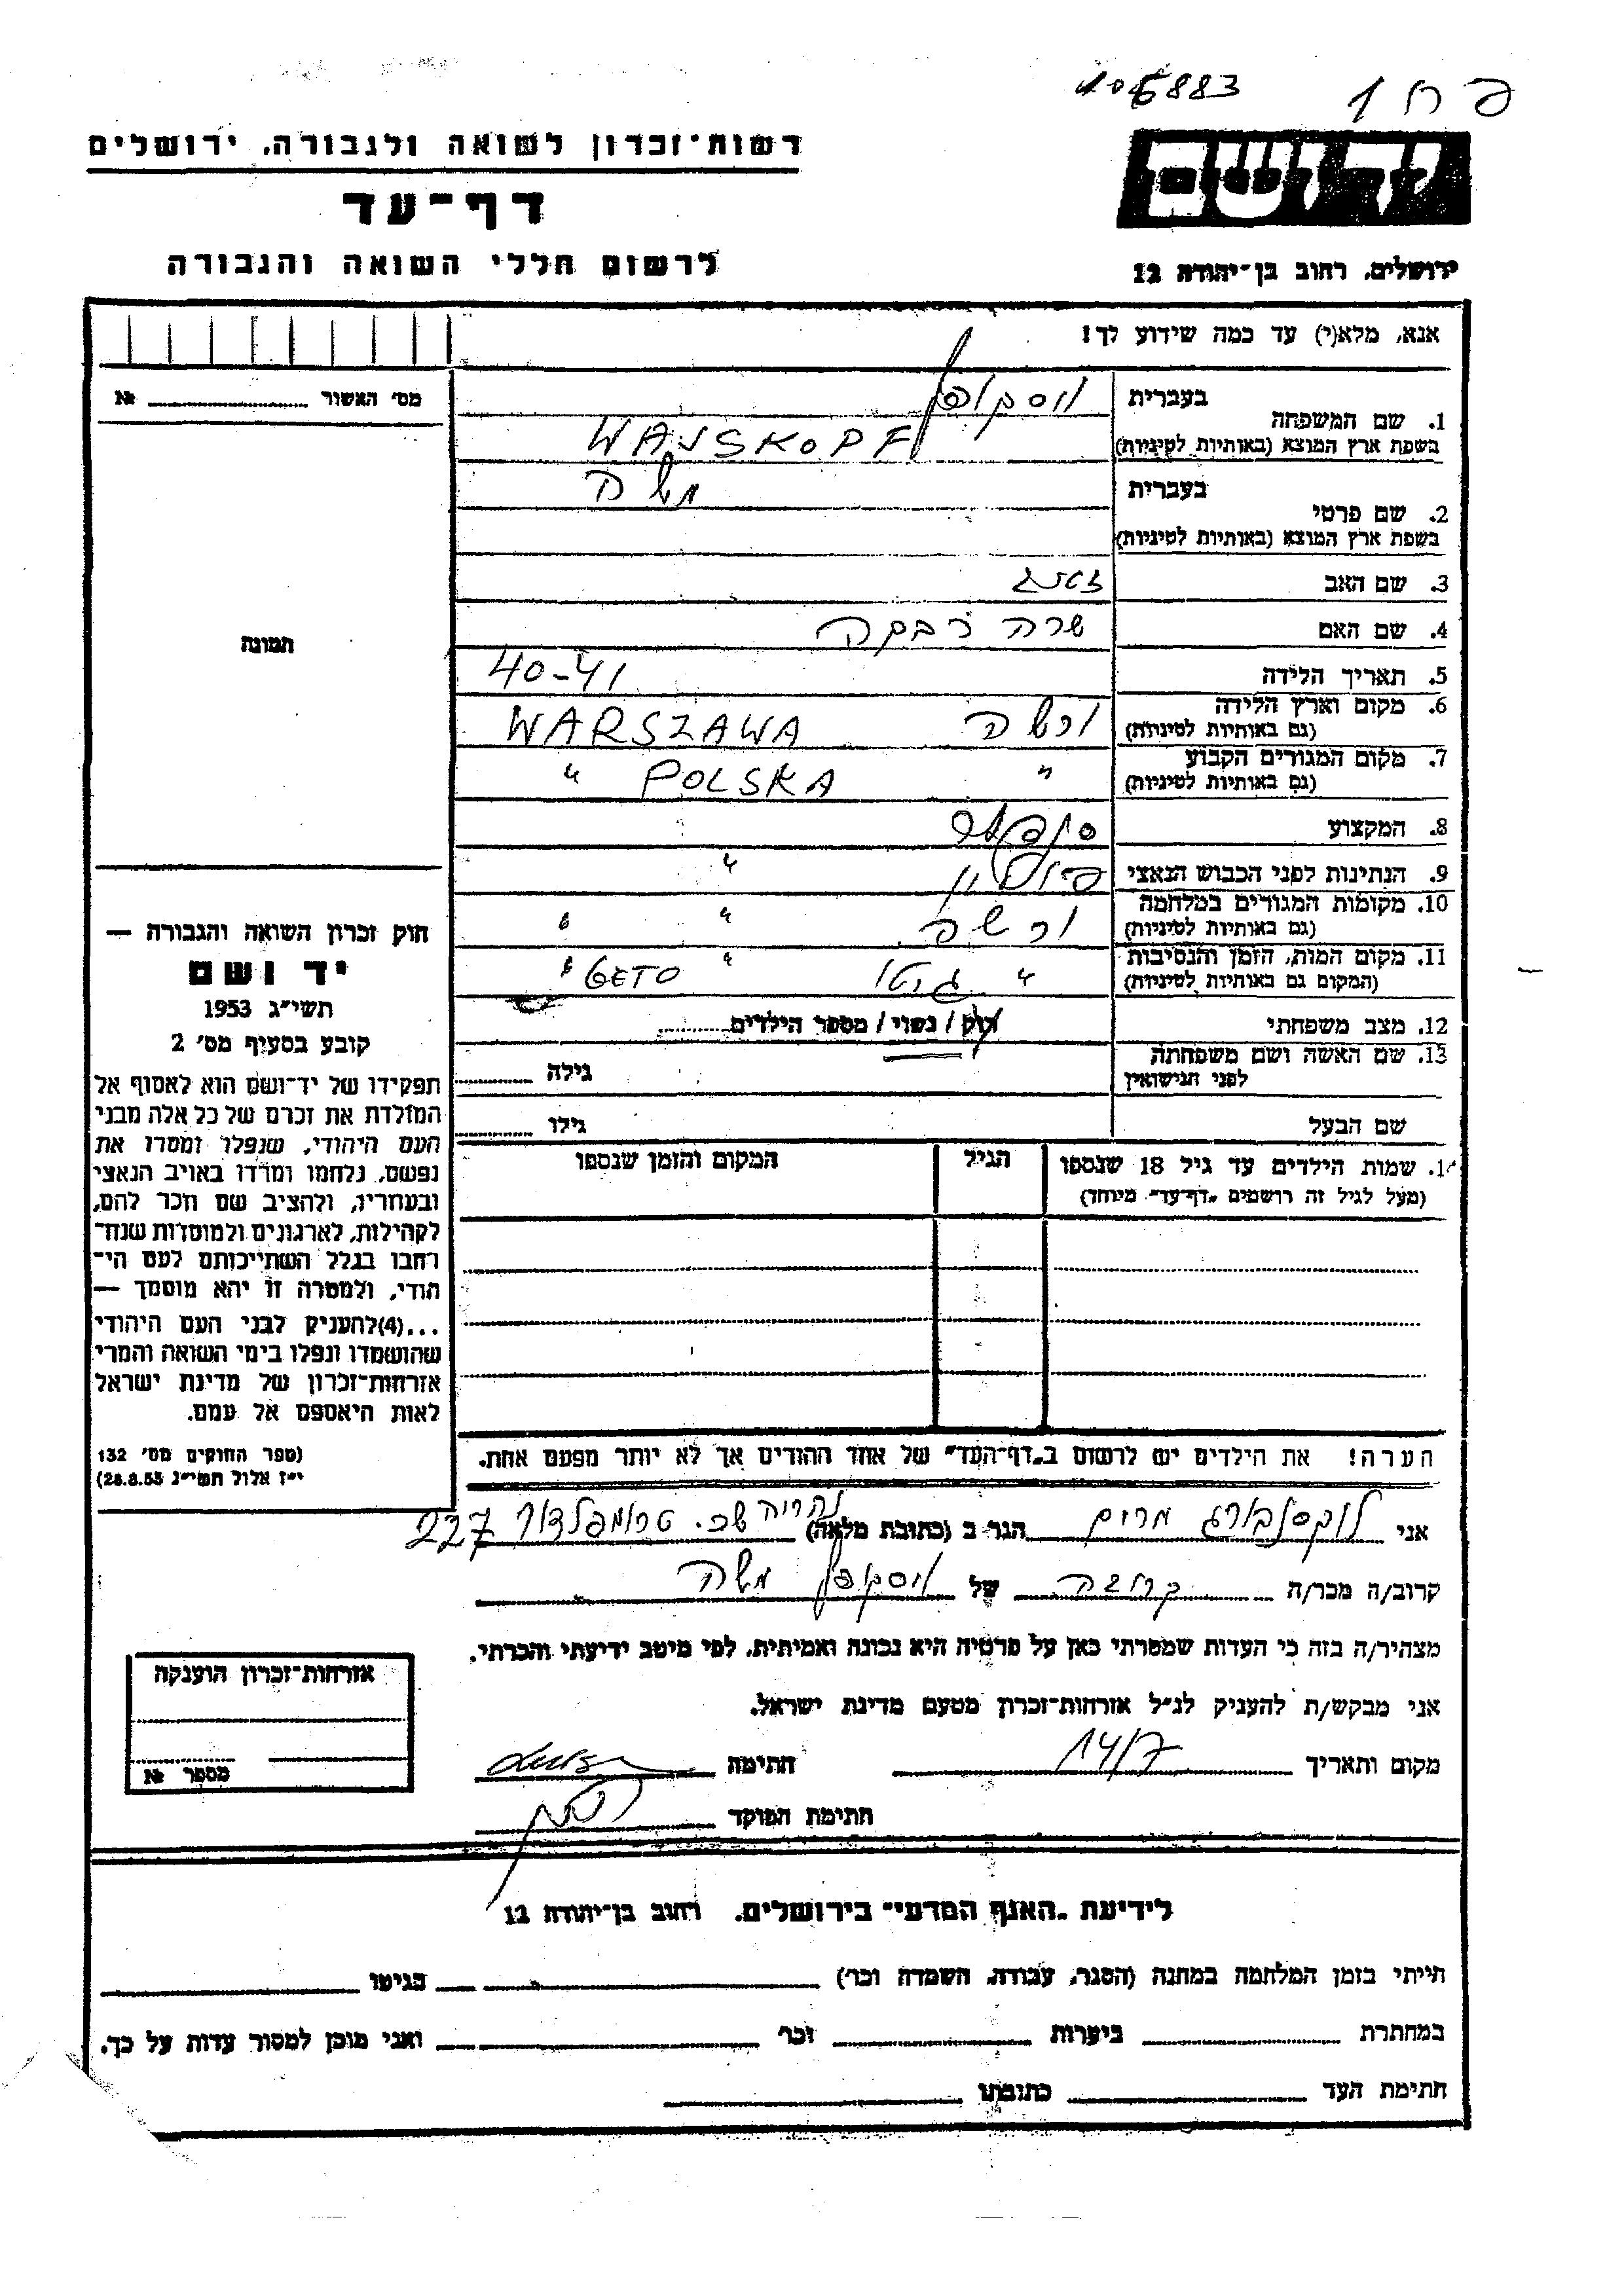 106883 פ ח 1
רשות־זכרון לשואה ולגבורה, ירושלים
יד ושם
דף־עד
לרשום חללי השואה והגבורה
ירושלים, רחוב בן־יהודה 12
אנא, מלא(י) עד כמה שידוע לך!
מס׳ האשור № 
1. שם המשפחה בעברית וייסקופף
בשפת ארץ המוצא (באותיות לטיניות) WAJSKOPF
2. שם פרטי בעברית משה
בשפת ארץ המוצא (באותיות לטיניות)
3. שם האב
4. שם האם שרה רבקה
5. תאריך הלידה 40-41
6. מקום וארץ הלידה (גם באותיות לטיניות) ורשה WARSZAWA
7. מקום המגורים הקבוע (גם באותיות לטיניות) " POLSKA "
8. המקצוע
9. הנתינות לפני הכבוש הנאצי "
10. מקומות המגורים במלחמה (גם באותיות לטיניות) ורשה " "
11. מקום המות, הזמן והנסיבות (המקום גם באותיות לטיניות) " גיטו " GETO "
12. מצב משפחתי רוק / נשוי / מספר הילדים
13. שם האשה ושם משפחתה לפני הנישואין גילה
שם הבעל גילו
14. שמות הילדים עד גיל 18 שנספו הגיל המקום והזמן שנספו
(מעל לגיל זה רושמים „דף־עד" מיוחד)
תמונה
חוק זכרון השואה והגבורה —
יד ושם
תשי״ג 1953
קובע בסעיף מס׳ 2
תפקידו של יד־ושם הוא לאסוף אל
המולדת את זכרם של כל אלה מבני
העם היהודי, שנפלו ומסרו את
נפשם, נלחמו ומרדו באויב הנאצי
ובעוזריו, ולהציב שם וזכר להם,
לקהילות, לארגונים ולמוסדות שנח־
רבו בגלל השתייכותם לעם הי־
הודי, ולמטרה זו יהא מוסמך —
...(4)להעניק לבני העם היהודי
שהושמדו ונפלו בימי השואה והמרי
אזרחות־זכרון של מדינת ישראל
לאות היאספם אל עמם.
(ספר החוקים מס׳ 132
י״ז אלול תשי״ג 28.8.53)
הערה! את הילדים יש לרשום ב„דף־העד" של אחד ההורים אך לא יותר מפעם אחת.
אני לוקסנבורג מרים הגר ב (כתובת מלאה) נהריה שכ. טרומפלדור 227
קרוב/ה מכר/ה קרובה של ויסקופף משה
מצהיר/ה בזה כי העדות שמסרתי כאן על פרטיה היא נכונה ואמיתית, לפי מיטב ידיעתי והכרתי.
אני מבקש/ת להעניק לנ״ל אזרחות־זכרון מטעם מדינת ישראל.
מקום ותאריך 14/7 חתימה
חתימת הפוקד
אזרחות־זכרון הוענקה
מספר №
לידיעת „האגף המדעי" בירושלים, רחוב בן־יהודה 12
הייתי בזמן המלחמה במחנה (הסגר, עבודה, השמדה וכו׳) בגיטו
במחתרת ביערות וכו׳ ואני מוכן למסור עדות על כך.
חתימת העד כתובתו